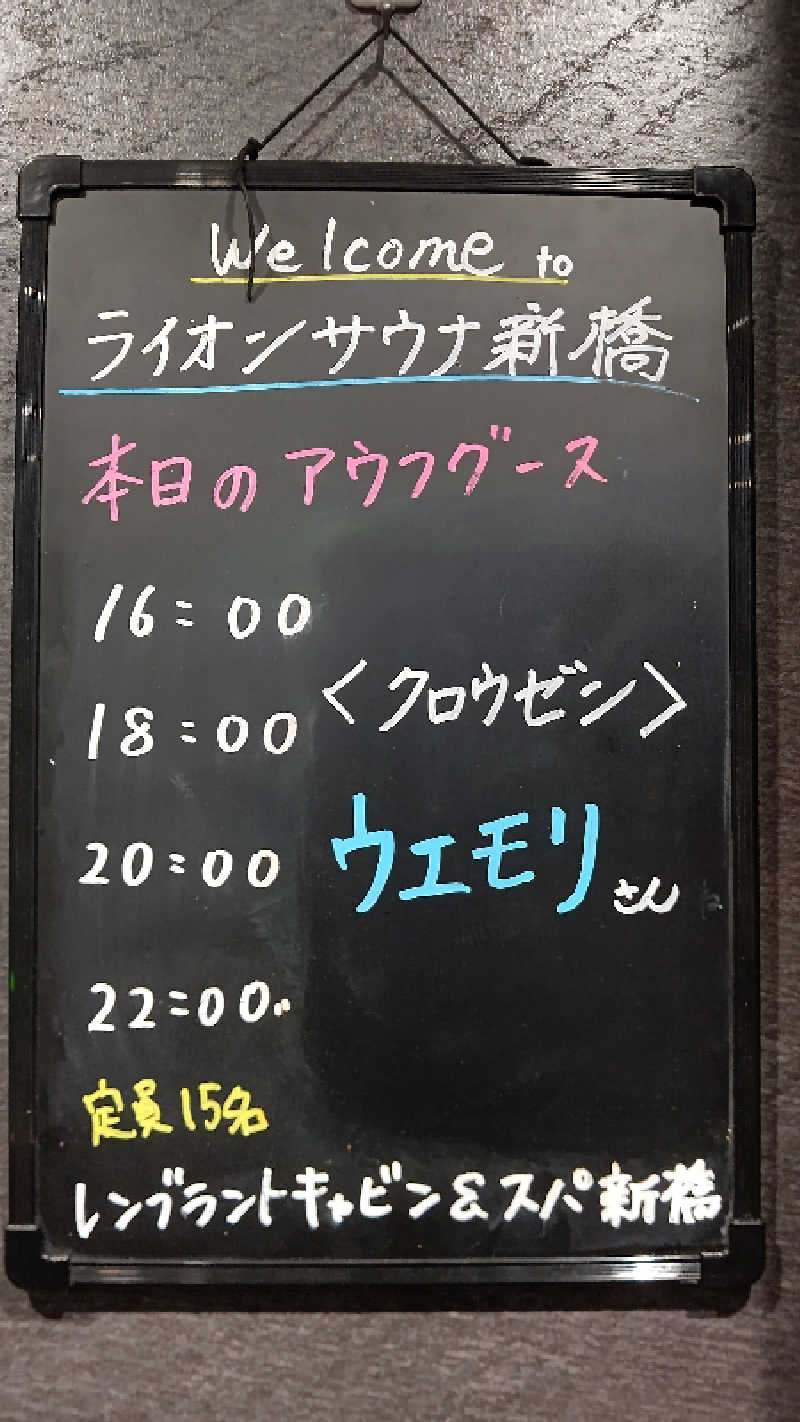 Welcome to
ライオンサウナ新橋
本日のアウフグース
16:00
18:00
<クロウゼン>
20:00
ウエモリさん
22:00
定員15名
レンブラントキャビン&スパ新橋